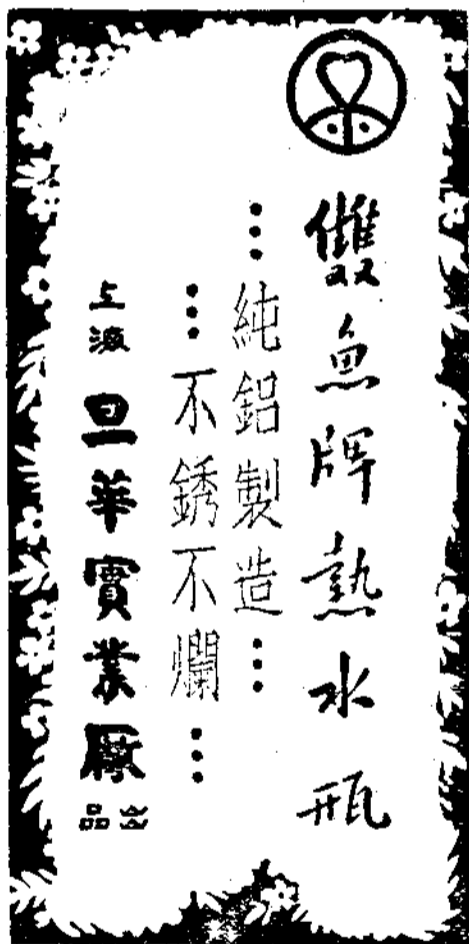 雙魚牌熱水瓶
…純鋁製造…
…不銹不爛…
上海旦華實業厰出品